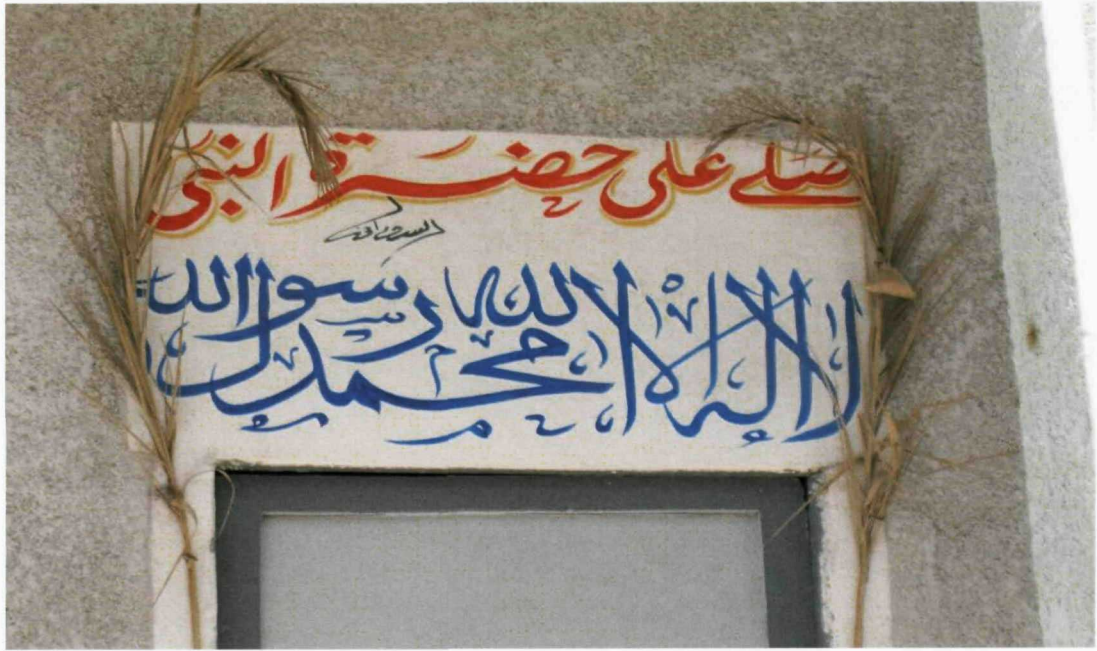 صلے على حضرة النبى
لا إله إلا الله محمد رسول الله